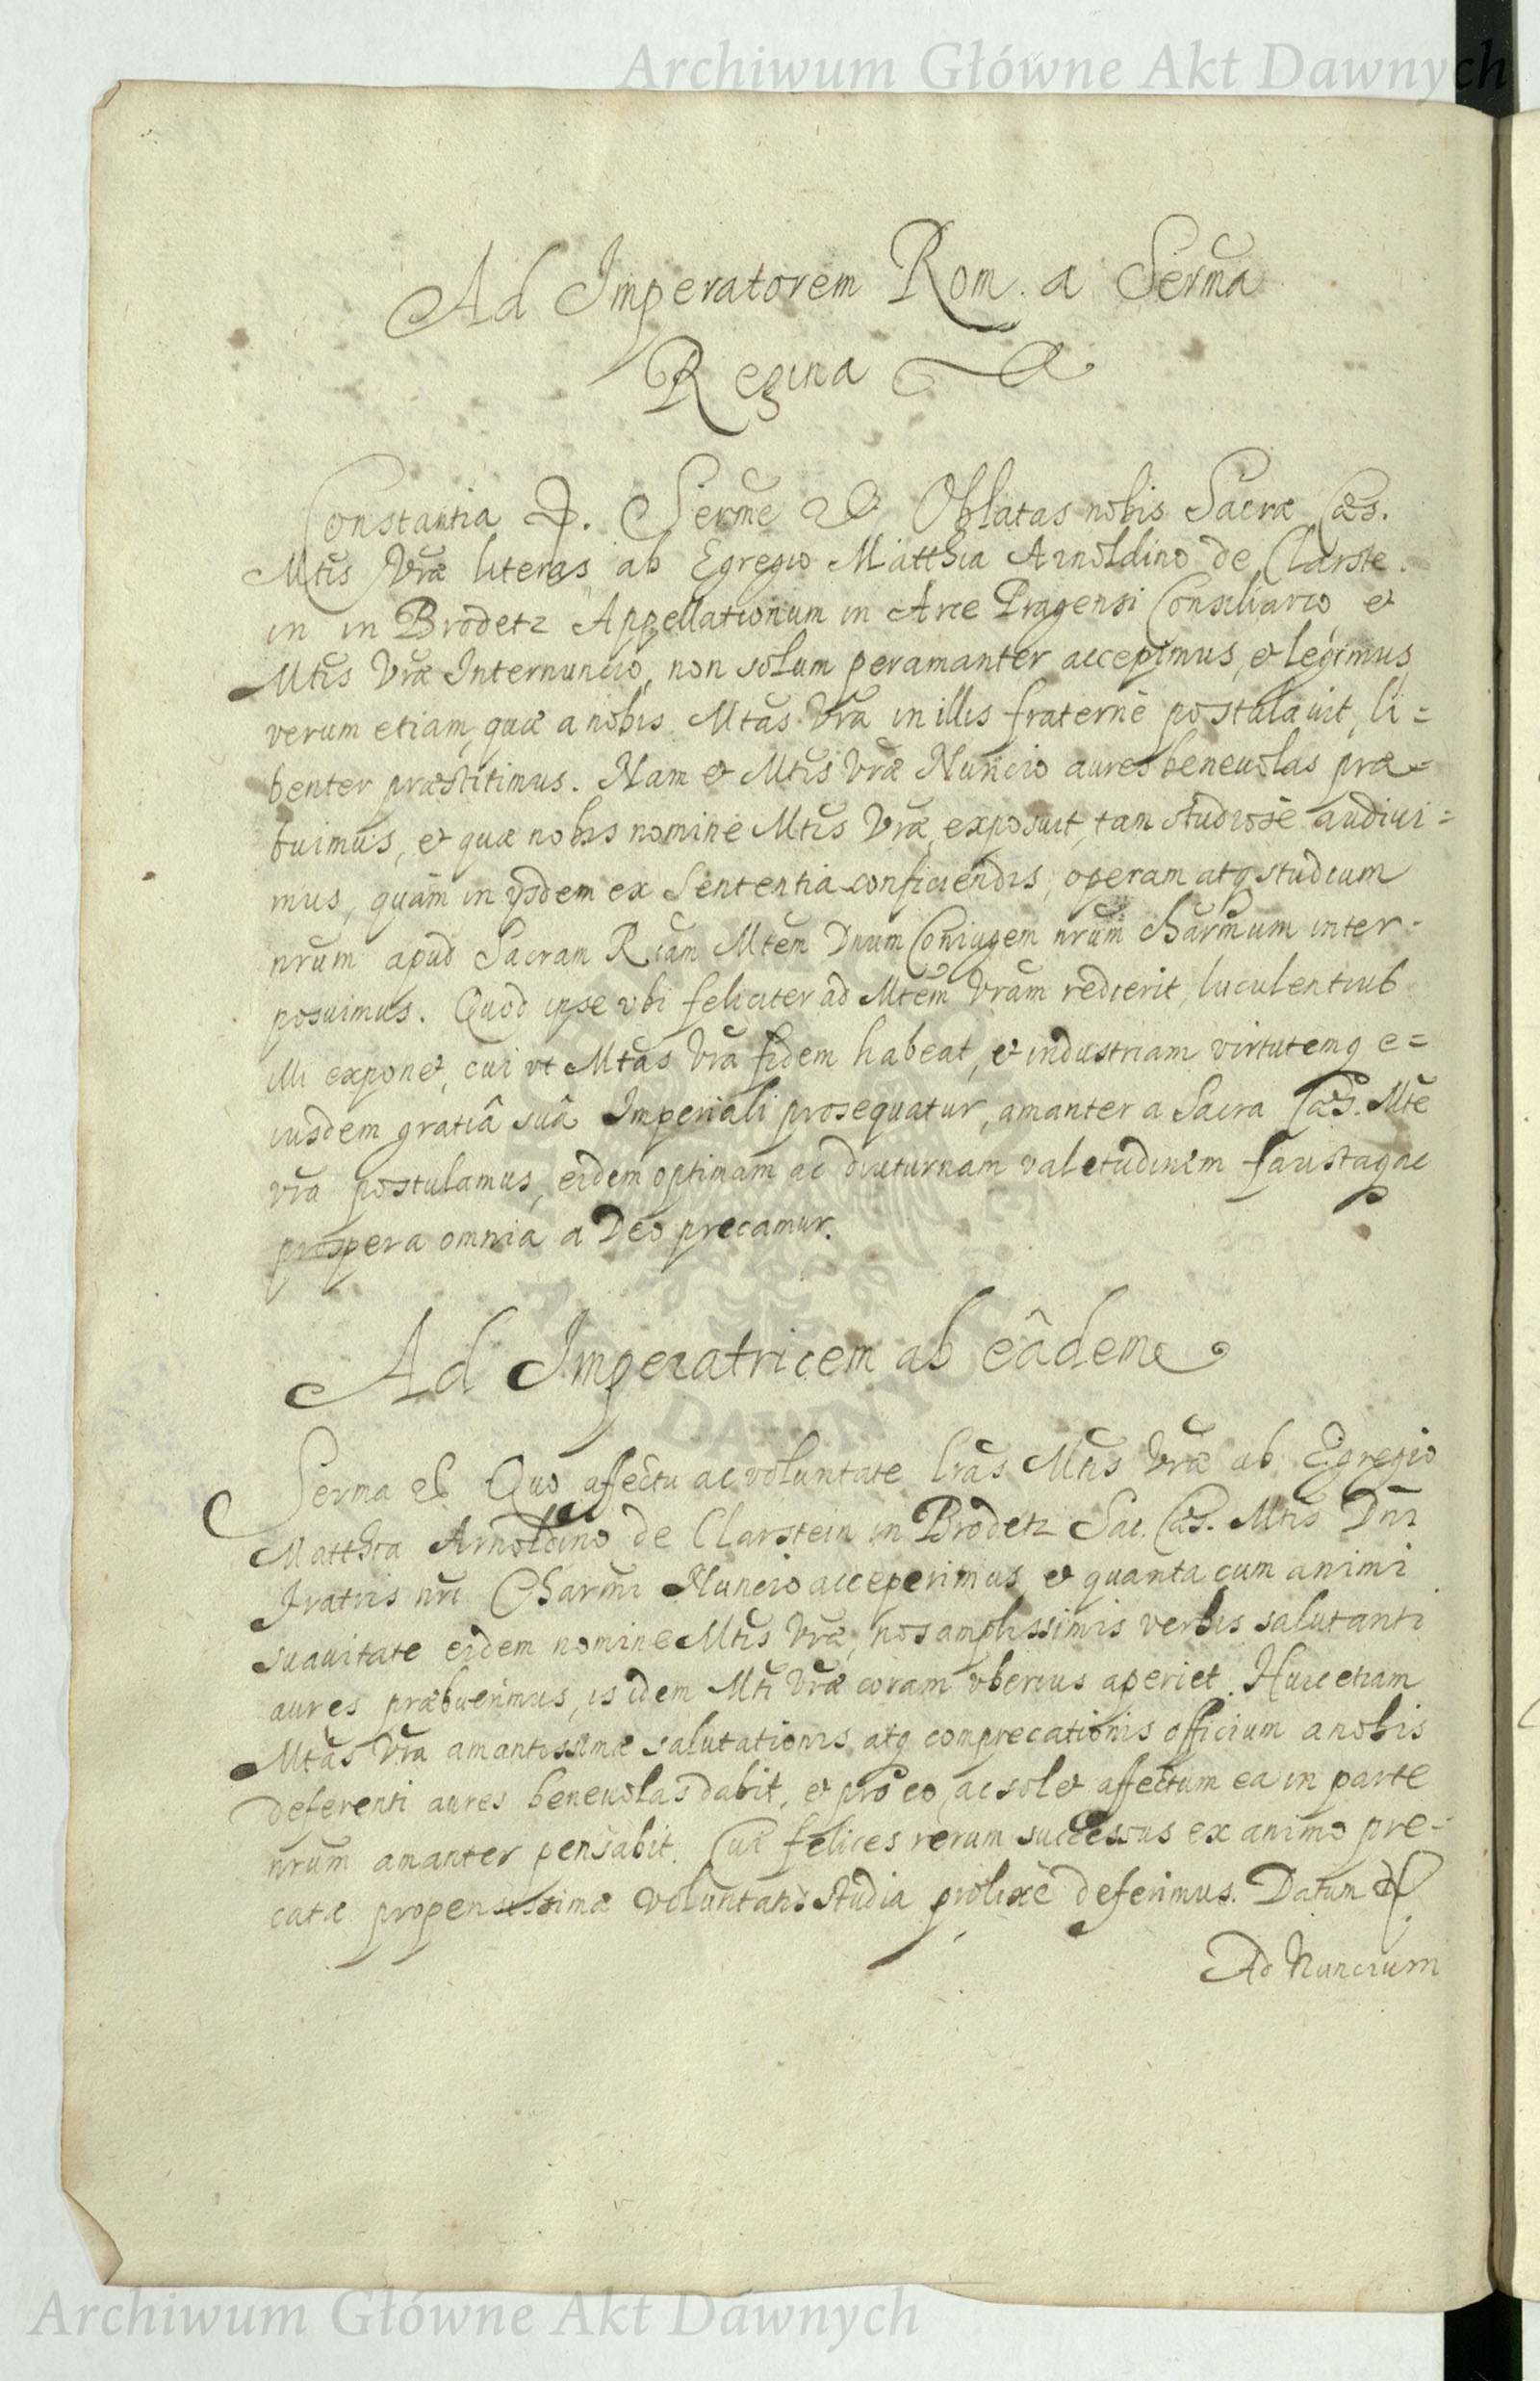 Archiwum Główne Akt Dawnych
Ad Imperatorem Rom. a Serma
Regina
Constantia &. Serme & Oblatas nobis Sacræ Cæs.
Mtis Vræ literas ab Egregio Matthia Arnoldino de Clarste.
in in Brodetz Appellationum in Arce Pragensi Consiliario, et
Mtis Vræ Internuncio, non solum peramanter accepimus, et legimus,
verum etiam, quæ a nobis Mtas Vra in illis fraternè postulavit, li=
benter præstitimus. Nam et Mtis Vræ Nuncio aures beneuolas præ=
buimus, et quæ nobis nomine Mtis Vræ exposuit, tam studiosè audiui=
mus, quàm in ijsdem ex sententia conficiendis, operam atq studium
nrum apud Sacram Riam Mtem Dnum Coniugem nrum charmum inter=
posuimus. Quod ipse vbi feliciter ad Mtem Vram redierit, luculentius
illi exponet, cui vt Mtas Vra fidem habeat, et industriam virtutemq e=
iusdem gratiâ suâ Imperiali prosequatur, amanter a Sacra Cæs. Mte
Vra postulamus, eidem optimam ac diuturnam valetudinem faustaq ac
prospera omnia a Deo precamur.
Ad Imperatricem ab eâdem
Serma & Quo affectu ac voluntate lras Mtis Vræ ab Egregio
Matthia Arnoldino de Clarstein in Brodetz Sac. Cæs. Mtis Dni
Fratris nri Charmi Nuncio acceperimus, et quanta cum animi
suauitate eidem nomine Mtis Vræ, nos amplissimis verbis salutanti
aures præbuerimus, is idem Mti Vræ coram vberius aperiet. Huic etiam
Mtas Vra amantissimæ salutationis, atq comprecationis officium a nobis
deferenti aures beneuolas dabit, et pro eo, ac solet affectum ea in parte
nrum amanter pensabit. Cui felices rerum successus ex animo pre=
catæ propensissimæ voluntatis studia prolixè deferimus. Datum &
Ad Nuncium
ARCHIWUM GŁÓWNE AKT DAWNYCH
Archiwum Główne Akt Dawnych